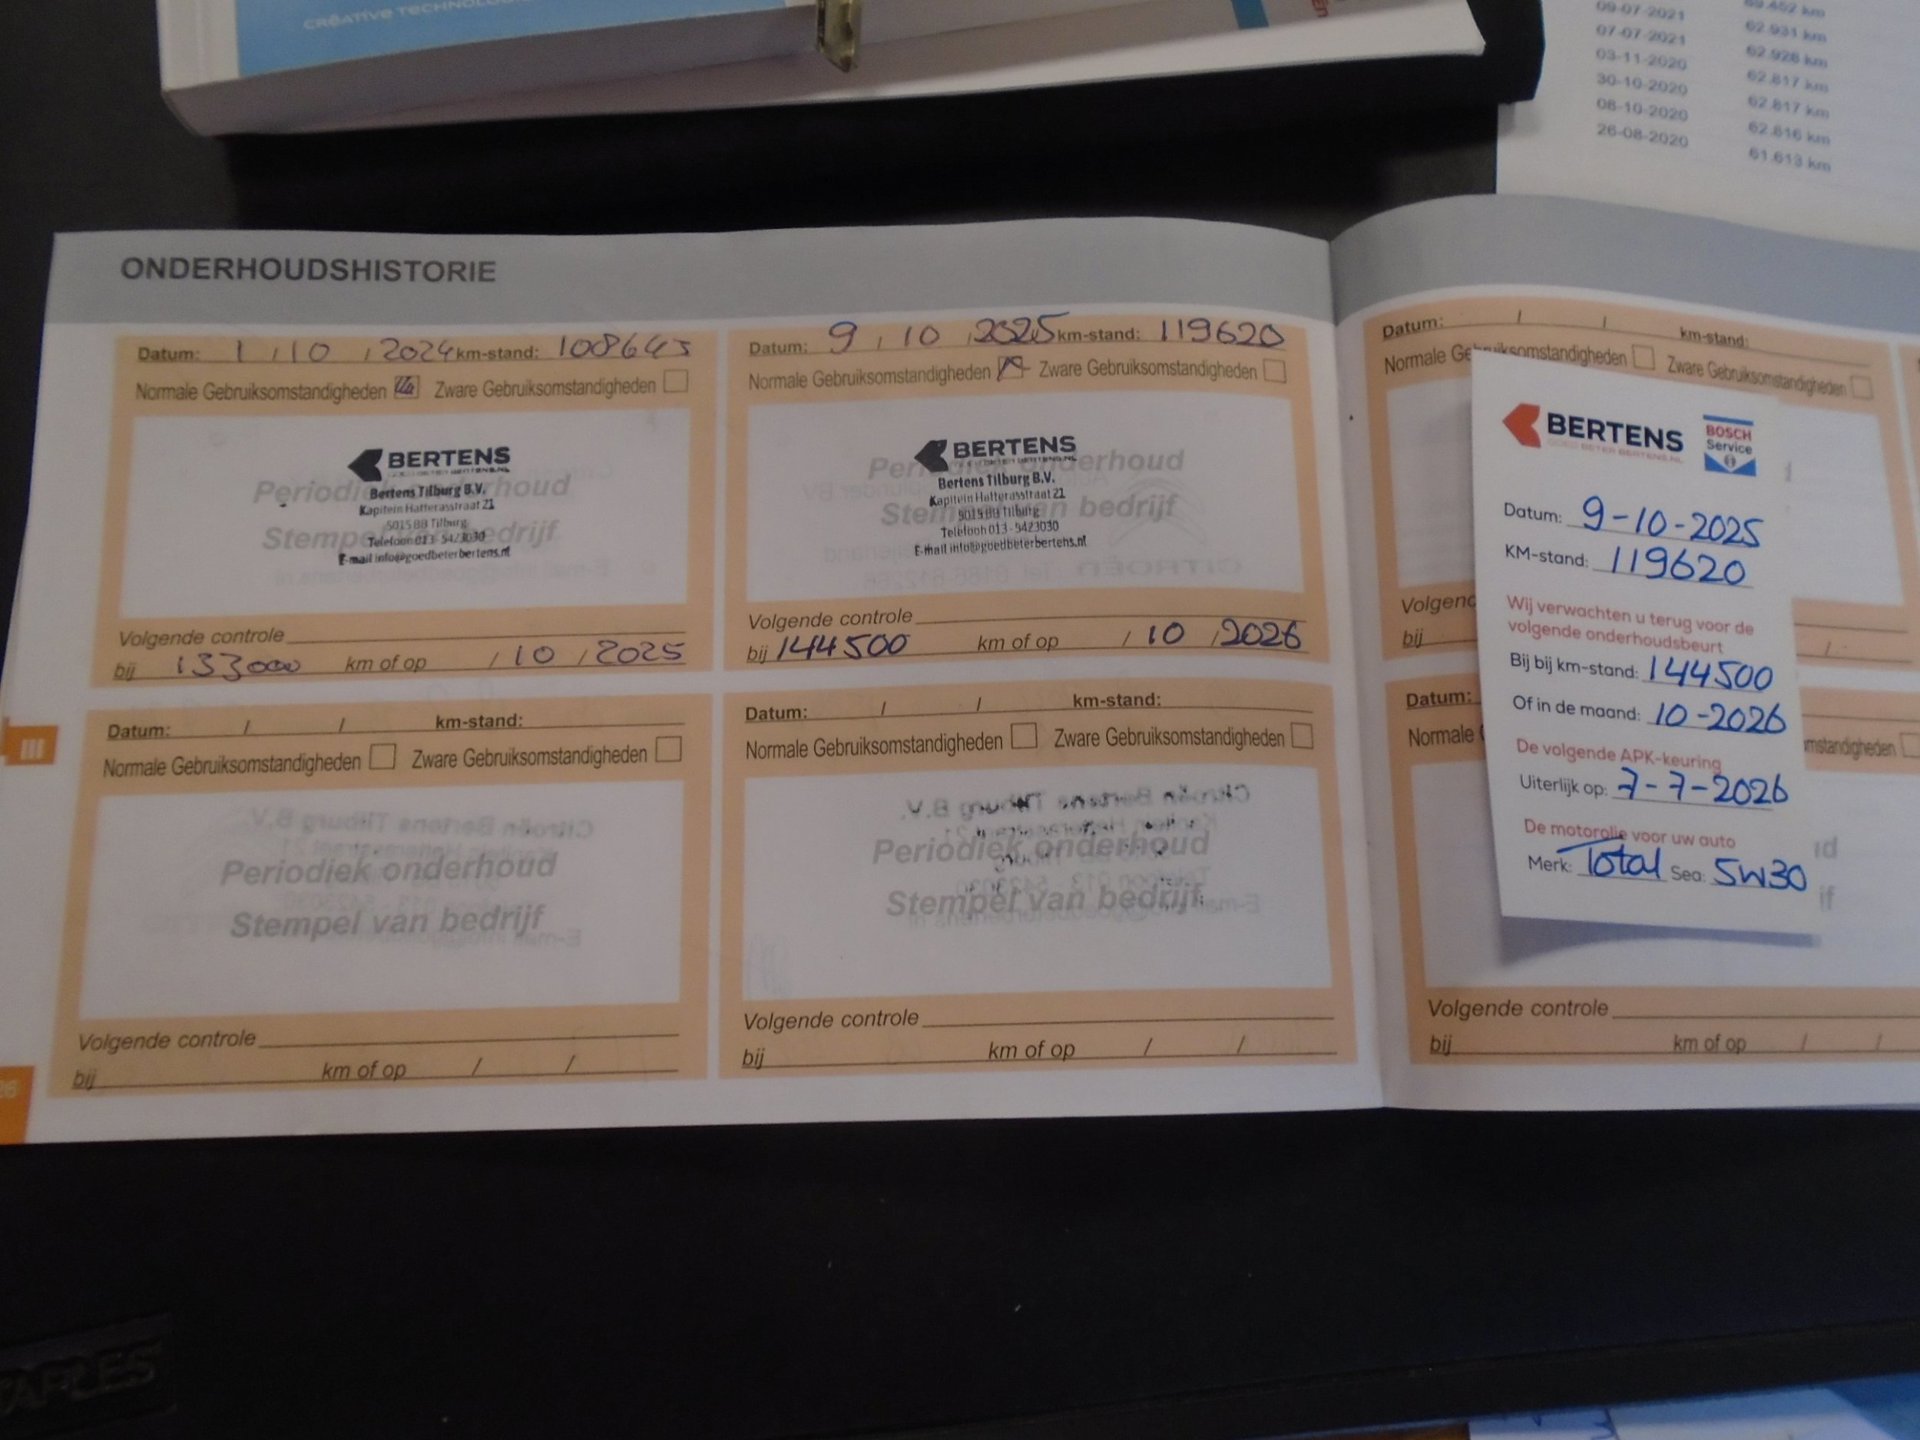 CREATIVE TECHNOLOGIE
09-07-2021 69.452 km
07-07-2021 62.931 km
03-11-2020 62.928 km
30-10-2020 62.817 km
08-10-2020 62.817 km
26-08-2020 62.816 km
61.613 km
ONDERHOUDSHISTORIE
Datum: 1 / 10 / 2024 km-stand: 108643
Normale Gebruiksomstandigheden Zware Gebruiksomstandigheden
Periodiek onderhoud
Stempel van bedrijf
BERTENS
GOED BETER BERTENS.NL
Bertens Tilburg B.V.
Kapitein Hatterasstraat 21
5015 BB Tilburg
Telefoon 013 - 5423030
E-mail info@goedbeterbertens.nl
Volgende controle
bij 133000 km of op / 10 / 2025
Datum: 9 / 10 / 2025 km-stand: 119620
Normale Gebruiksomstandigheden Zware Gebruiksomstandigheden
Periodiek onderhoud
Stempel van bedrijf
BERTENS
GOED BETER BERTENS.NL
Bertens Tilburg B.V.
Kapitein Hatterasstraat 21
5015 BB Tilburg
Telefoon 013 - 5423030
E-mail info@goedbeterbertens.nl
Volgende controle
bij 144500 km of op / 10 / 2026
III
Datum: / / km-stand:
Normale Gebruiksomstandigheden Zware Gebruiksomstandigheden
Periodiek onderhoud
Stempel van bedrijf
Volgende controle
bij km of op / /
Datum: / / km-stand:
Normale Gebruiksomstandigheden Zware Gebruiksomstandigheden
Periodiek onderhoud
Stempel van bedrijf
Volgende controle
bij km of op / /
Datum: / / km-stand:
Normale Gebruiksomstandigheden Zware Gebruiksomstandigheden
Volgend
bij
Datum:
Normale
mstandigheden
Volgende controle
bij km of op / /
BERTENS
GOED BETER BERTENS.NL
BOSCH
Service
Datum: 9-10-2025
KM-stand: 119620
Wij verwachten u terug voor de
volgende onderhoudsbeurt
Bij bij km-stand: 144500
Of in de maand: 10-2026
De volgende APK-keuring
Uiterlijk op: 7-7-2026
De motorolie voor uw auto
Merk: Total Sea: 5W30